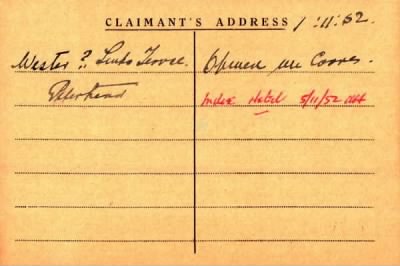 CLAIMANT'S ADDRESS
1:11:52.
Wester ? Links Terrce.
Peterhead
Opened in Coores.
Index Noted 5/11/52